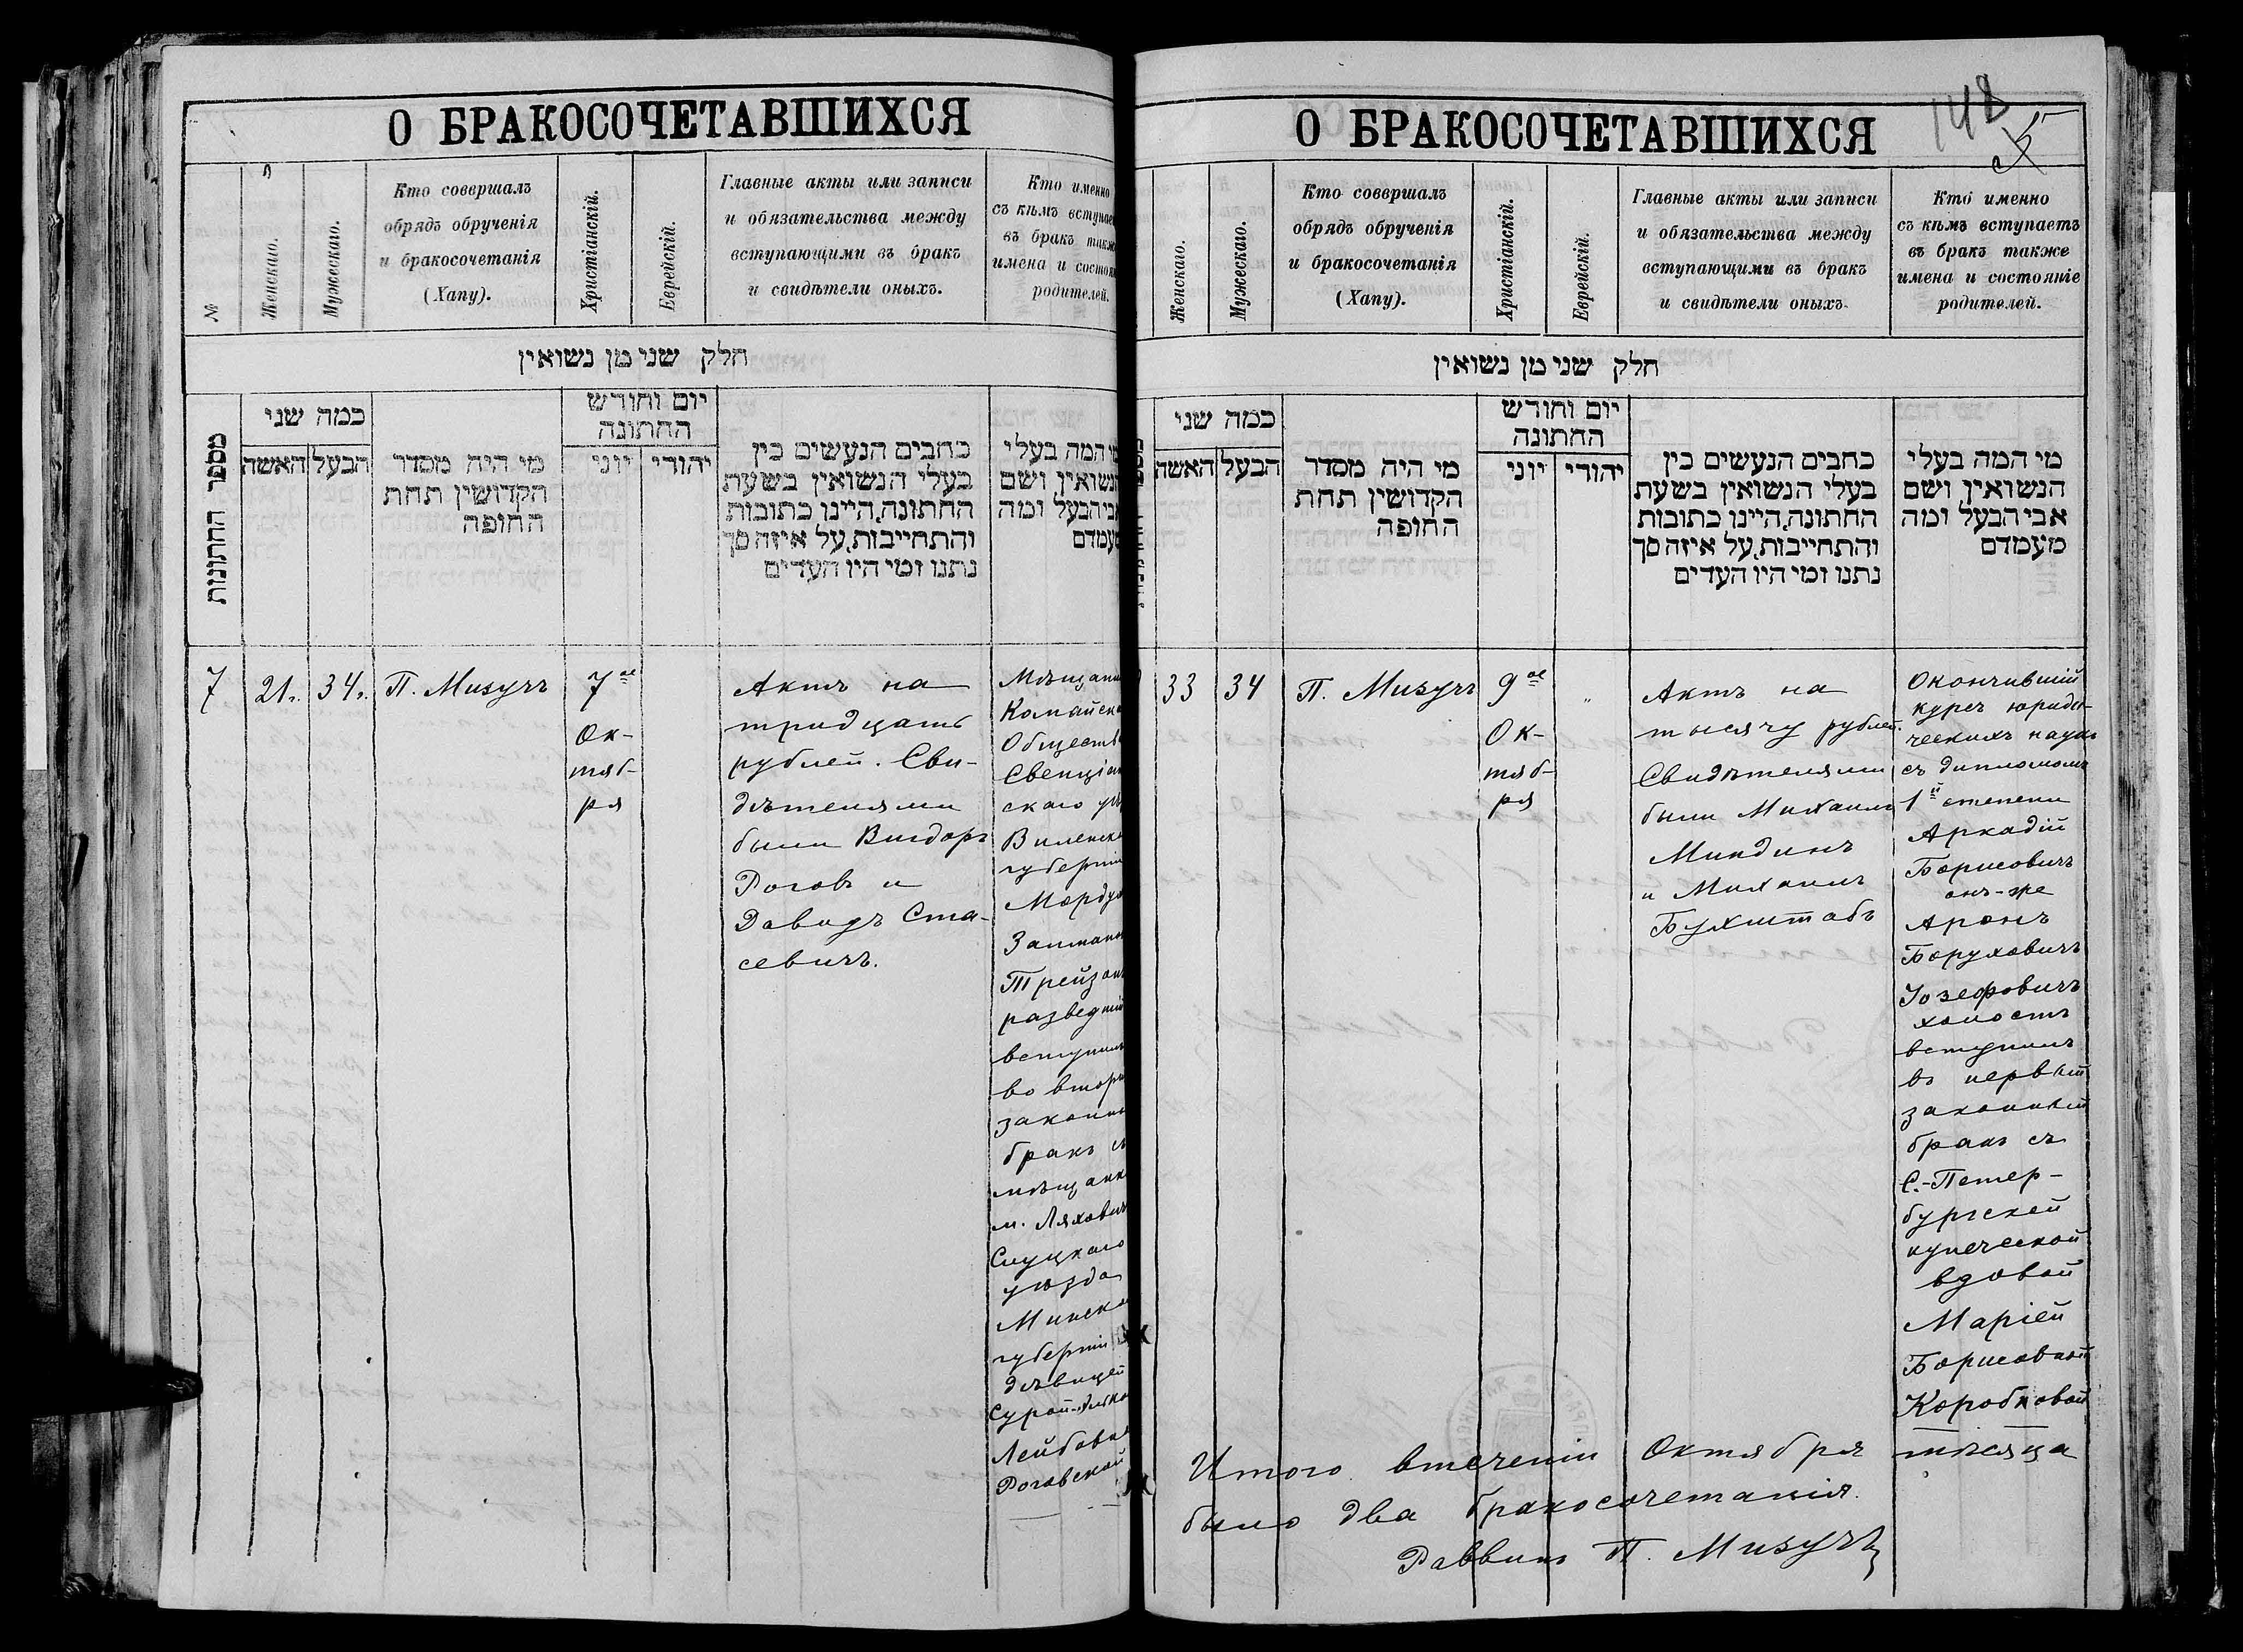 О БРАКОСОЧЕТАВШИХСЯ
№
Женскаго.
Мужескаго.
Кто совершалъ
обрядъ обрученія
и бракосочетанія
(Хапу).
Христіанскій.
Еврейскій.
Главные акты или записи
и обязательства между
вступающими въ бракъ
и свидѣтели оныхъ.
Кто именно
съ кѣмъ вступае
въ бракъ такж
имена и состоя
родителей.
חלק שני מן נשואין
מספר החתונות
כמה שני
האשה
הבעל
מי היה מסדר
הקדושין תחת
החופה
יום וחודש
החתונה
יוני
יהודי
כתבים הנעשים בין
בעלי הנשואין בשעת
החתונה, היינו כתובות
והתחייבות, על איזה סך
נתנו ומי היו העדים
מי המה בעלי
הנשואין ושם
אבי הבעל ומה
מעמדם
7
21 г.
34 г.
П. Мизучъ
7го
Ок-
тяб-
ря
Актъ на
тридцать
рублей. Сви-
дѣтелями
были Вигдоръ
Рогов и
Давидъ Ста-
севичъ.
Мѣщани
Комайска
Обществ
Свенцян
скаго уѣ
Виленск
губерніи
Мордух
Залмано
Трейзон
разведній
вступилъ
во втор
законн
бракъ съ
мѣщанк
м. Ляхович
Слуцкаго
уѣзда
Минско
губерніи
дѣвицей
Сурой-
Лейбовн
Роговской
О БРАКОСОЧЕТАВШИХСЯ
148
Женскаго.
Мужескаго.
Кто совершалъ
обрядъ обрученія
и бракосочетанія
(Хапу).
Христіанскій.
Еврейскій.
Главные акты или записи
и обязательства между
вступающими въ бракъ
и свидѣтели оныхъ.
Кто именно
съ кѣмъ вступаетъ
въ бракъ также
имена и состояніе
родителей.
חלק שני מן נשואין
כמה שני
האשה
הבעל
מי היה מסדר
הקדושין תחת
החופה
יום וחודש
החתונה
יוני
יהודי
כתבים הנעשים בין
בעלי הנשואין בשעת
החתונה, היינו כתובות
והתחייבות, על איזה סך
נתנו ומי היו העדים
מי המה בעלי
הנשואין ושם
אבי הבעל ומה
מעמדם
33
34
П. Мизучъ
9го
Ок-
тяб-
ря
"
Актъ на
тысячу рублей.
Свидѣтелями
были Михаилъ
Миндинъ
и Михаилъ
Бухштабъ
Окончившій
курсъ юриди-
ческихъ наукъ
съ дипломомъ
1й степени
Аркадій
Борисовичъ
онъ-же
Аронъ
Боруховичъ
Іозефовичъ
холостъ
вступилъ
въ первый
законный
бракъ съ
С.-Петер-
бургской
купеческой
вдовой
Маріей
Борисовной
Коробковой
Итого втеченіи Октября мѣсяца
было два бракосочетанія.
Раввинъ П. Мизучъ